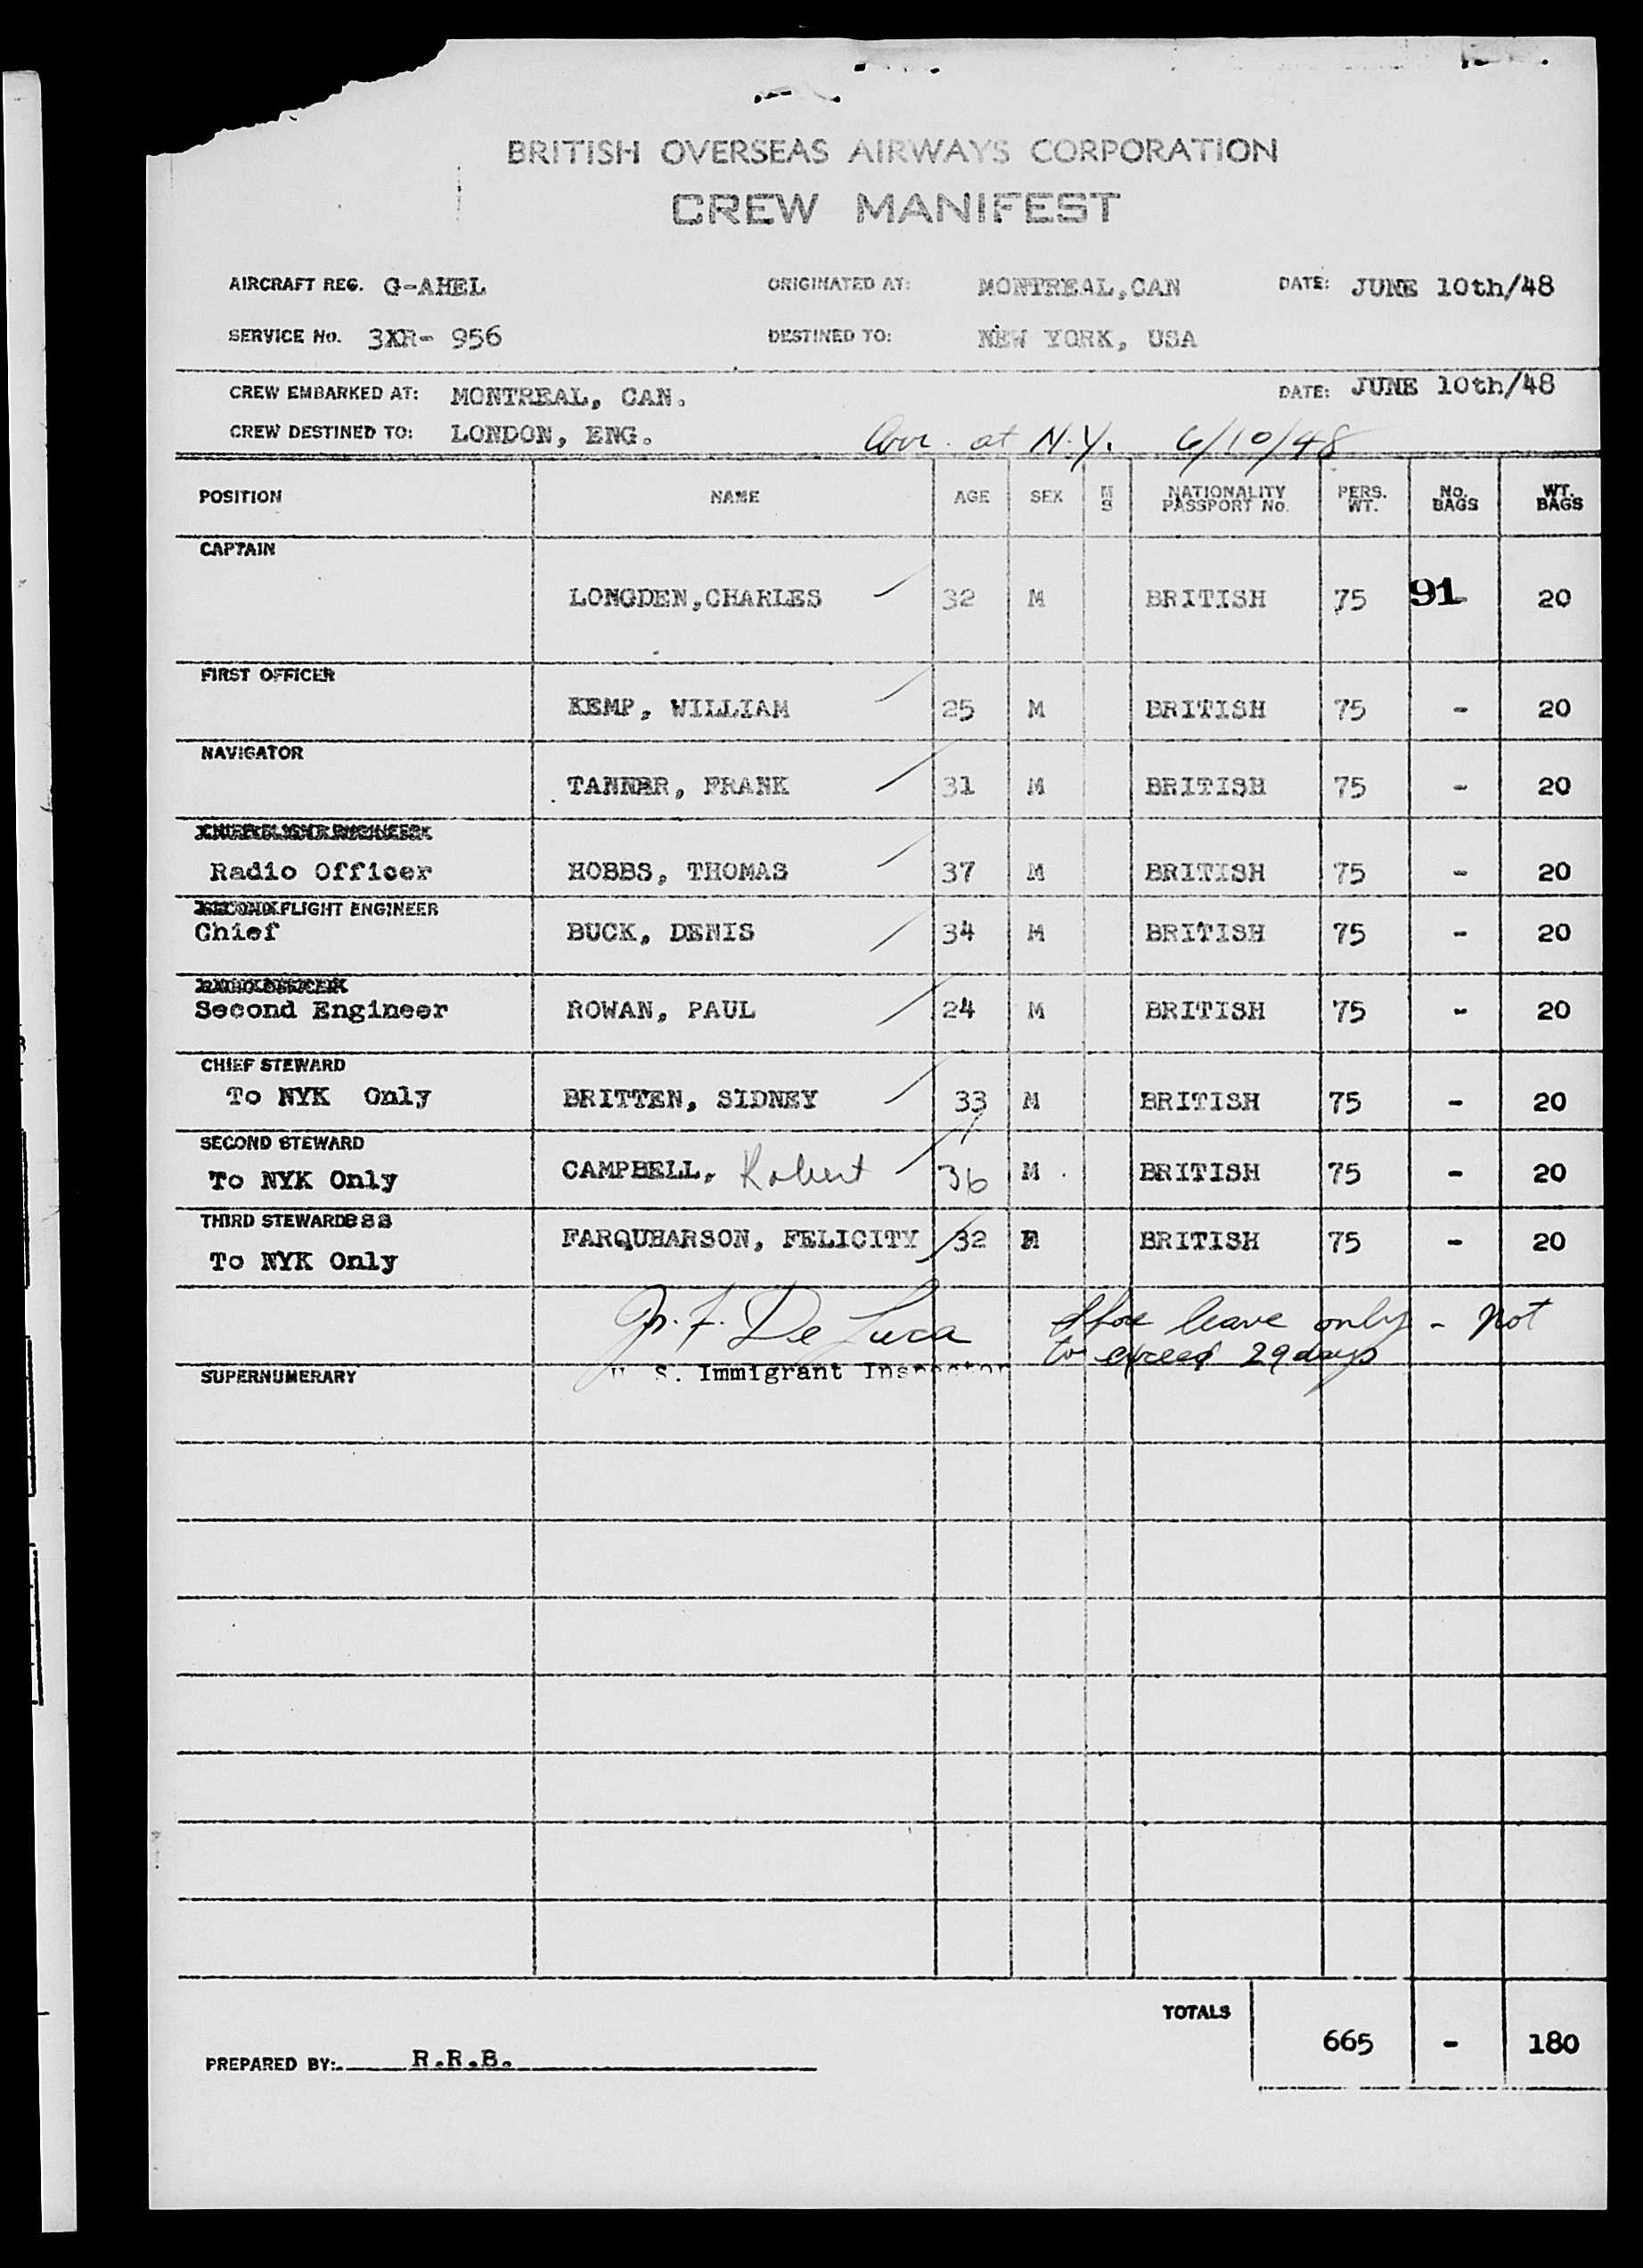 BRITISH OVERSEAS AIRWAYS CORPORATION
CREW MANIFEST
AIRCRAFT REG. G-AHEL ORIGINATED AT: MONTREAL,CAN DATE: JUNE 10th/48
SERVICE No. 3XR- 956 DESTINED TO: NEW YORK, USA
CREW EMBARKED AT: MONTREAL, CAN. DATE: JUNE 10th/48
CREW DESTINED TO: LONDON, ENG. Arr. at N.Y. 6/10/48
POSITION NAME AGE SEX M S NATIONALITY PASSPORT No. PERS. WT. No. BAGS WT. BAGS
CAPTAIN
LONGDEN,CHARLES 32 M BRITISH 75 91- 20
FIRST OFFICER
KEMP, WILLIAM 25 M BRITISH 75 - 20
NAVIGATOR
TANNER, FRANK 31 M BRITISH 75 - 20
Radio Officer HOBBS, THOMAS 37 M BRITISH 75 - 20
FLIGHT ENGINEER
Chief BUCK, DENIS 34 M BRITISH 75 - 20
Second Engineer ROWAN, PAUL 24 M BRITISH 75 - 20
CHIEF STEWARD
To NYK Only BRITTEN, SIDNEY 33 M BRITISH 75 - 20
SECOND STEWARD
To NYK Only CAMPBELL, Robert 36 M BRITISH 75 - 20
THIRD STEWARDESS
To NYK Only FARQUHARSON, FELICITY 32 F BRITISH 75 - 20
De Luca Shore leave only - not
to exceed 29 days
SUPERNUMERARY U. S. Immigrant Inspector
TOTALS
665 - 180
PREPARED BY: R.R.B.